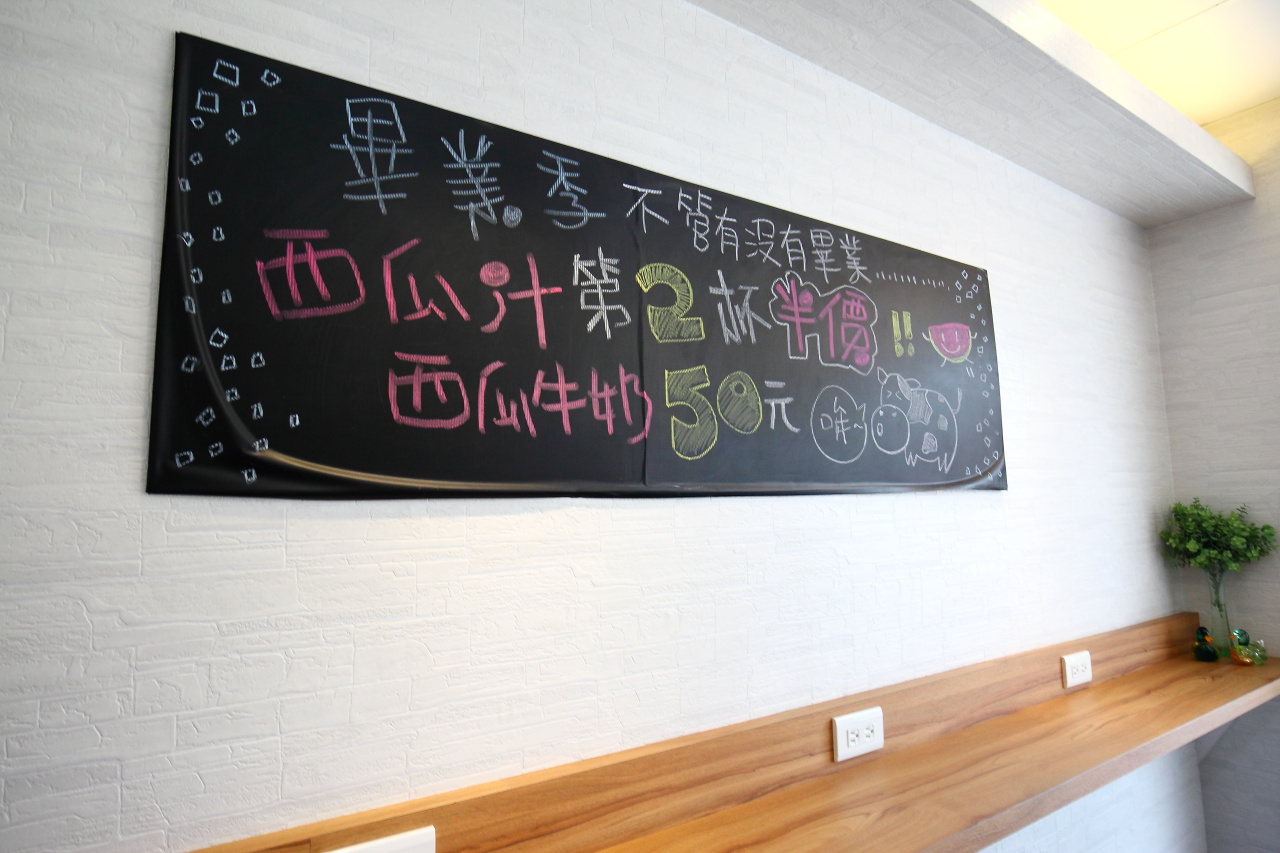 畢業季 不管有沒有畢業............
西瓜汁第2杯半價!!
西瓜牛奶50元 哞~